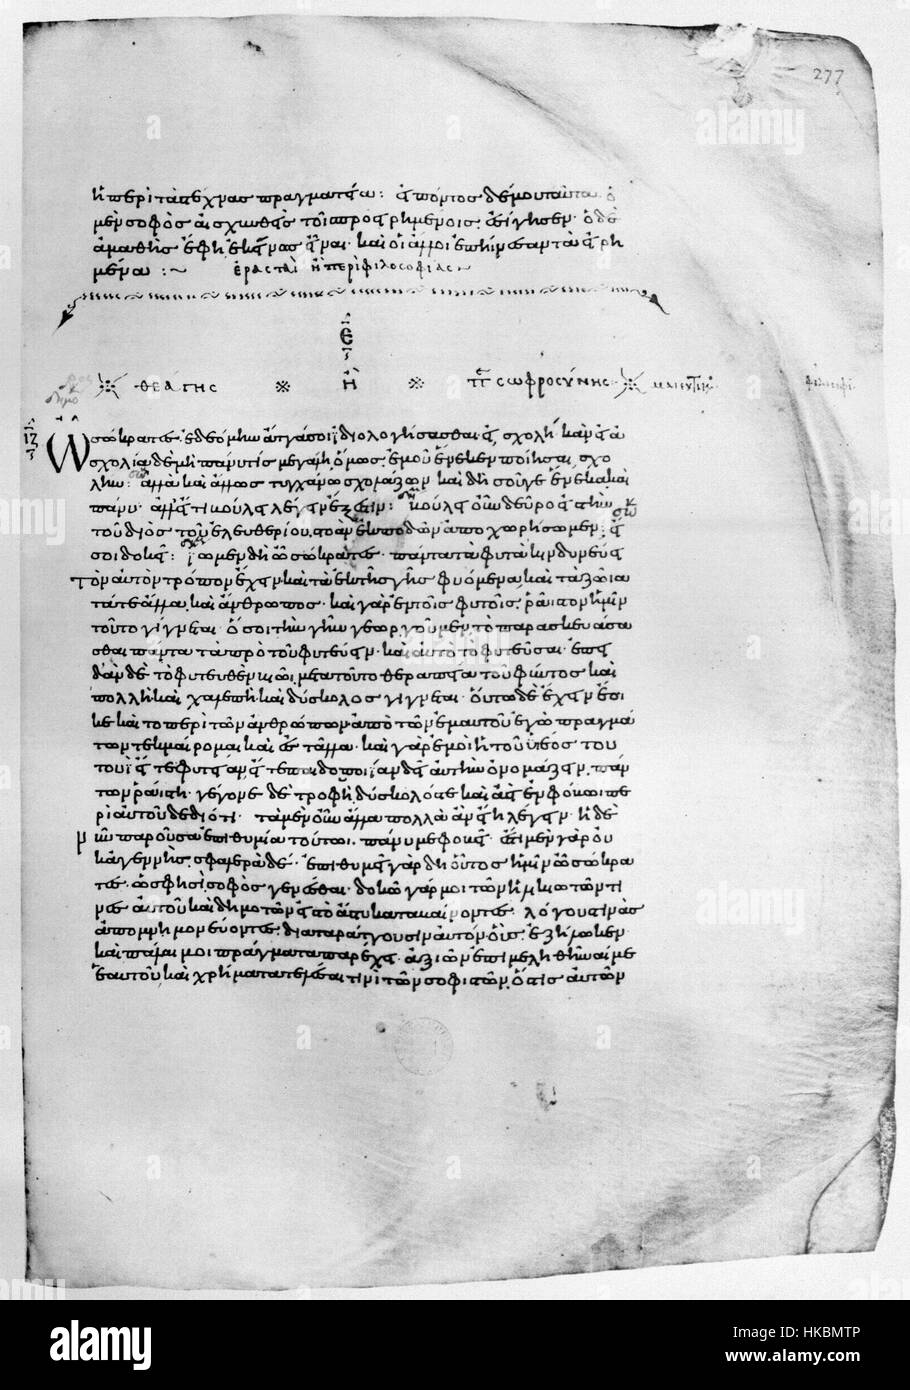 277
ἢ περὶ τὰς τέχνας πραγματείαν: εἰπόντος δέ μου ταῦτα ὁ
μὲν σοφὸς αἰσχυνθεὶς τοῖς προειρημένοις ἐσίγησεν· ὁ δὲ
ἀμαθὴς ἔφη ἐκείνως εἶναι· καὶ οἱ ἄλλοι ἐπήινεσαν τὰ εἰρη
μένα :~ ἐρασταὶ ἢ περὶ φιλοσοφίας~
Ε
ΘΕΑΓΗΣ ※ Ἢ ※ ΠΕΡΙ ΣΩΦΡΟΣΥΝΗΣ ※ ΜΑΙΕΥΤΙΚΟΣ
ΙΖ
Ὦ σώκρατες ἐδεόμην ἄττα σοι ἰδιολογήσασθαι εἰ σχολή· κἂν εἰ ἀ
σχολία δὲ μὴ πάνυ τις μεγάλη, ὅμως ἐμοῦ ἕνεκεν ποίησαι σχο
λήν: ἀλλὰ καὶ ἄλλως τυγχάνω σχολάζων καὶ δὴ σοῦ γε ἕνεκα καὶ
πάνυ· ἀλλ' εἴ τι βούλει λέγειν ἔξεστιν: βούλει οὖν δεῦρο εἰς τὴν
τοῦ διὸς τοῦ ἐλευθερίου στοὰν ἐκποδὼν ἀποχωρήσωμεν: εἴ
σοι δοκεῖ: ἴωμεν δὴ ὦ σώκρατες· πάντα τὰ φυτὰ κινδυνεύει
τὸν αὐτὸν τρόπον ἔχειν· καὶ τὰ ἐκ τῆς γῆς φυόμενα καὶ τὰ ζῶια
τά τε ἄλλα καὶ ἄνθρωπος· καὶ γὰρ ἐν τοῖς φυτοῖς ῥᾶιστον ἡμῖν
τοῦτο γίγνεται ὅσοι τὴν γῆν γεωργοῦμεν τὸ παρασκευάσα
σθαι πάντα τὰ πρὸ τοῦ φυτεύειν· καὶ αὐτὸ τὸ φυτεῦσαι· ἐπει
δὰν δὲ τὸ φυτευθὲν βιῶι μετὰ τοῦτο θεραπεία τοῦ φύντος καὶ
πολλὴ καὶ χαλεπὴ καὶ δύσκολος γίγνεται· οὕτω δὲ ἔχειν ἔοι
κε καὶ τὸ περὶ τῶν ἀνθρώπων· ἀπὸ τῶν ἐμαυτοῦ ἐγὼ πραγμά
των τεκμαίρομαι καὶ ἐς τἄλλα· καὶ γὰρ ἐμοὶ ἡ τοῦ ὑέος του
τουὶ εἴτε φυτείαν εἴτε παιδοποιΐαν δεῖ αὐτὴν ὀνομάζειν, πάν
των ῥάιστη· γέγονε δὲ τροφὴ δύσκολός τε καὶ ἀεὶ ἐν φόβωι πε
ρὶ αὐτοῦ δεδιότι· τὰ μὲν οὖν ἄλλα πολλὰ ἂν εἴη λέγειν· ἡ δὲ
νῦν παροῦσα ἐπιθυμία τούτωι· πάνυ με φοβεῖ· ἔστι μὲν γὰρ οὐ
κ ἀγεννής· σφαλερὰ δέ· ἐπιθυμεῖ γὰρ δὴ οὗτος ἡμῖν ὦ σώκρα
τες· ὥς φησι σοφὸς γενέσθαι· δοκῶ γάρ μοι τῶν ἡλικιωτῶν τι
νες αὐτοῦ καὶ δημοτῶν εἰς τὸ ἄστυ καταβαίνοντες· λόγους τινὰς
ἀπομνημονεύοντες· διαταράττουσιν αὐτόν· οὓς ἐζήλωκεν
καὶ πάλαι μοι πράγματα παρέχει ἀξιῶν ἐπιμεληθῆναί με
ἑαυτοῦ καὶ χρήματα τελέσαι τινὶ τῶν σοφιστῶν, ὅστις αὐτὸν
alamy
Image ID: HKBMTP
www.alamy.com